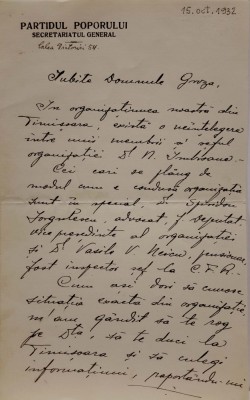 15. oct. 1932
PARTIDUL POPORULUI
SECRETARIATUL GENERAL
Calea Victoriei 54
Iubite Domnule Groza,
In organizațiunea noastră din
Timișoara, există o neințelegere
intre unii membrii și șeful
organizației Dl A. Imbroane.
Cei cari se plâng de
modul cum e condusă organizația
sunt in special, Dl Spiridon
Iorgulescu, advocat, f. deputat.
Vice președinte al organizației
și Dl Vasile V. Neicu, pensionar,
fost inspector șef la C.F.R.
Cum asi dori să cunosc
situația exacta din organizație
m'am gândit să te rog
pe Dta, să te duci la
Timisoara și să culegi
informațiuni, raportându-mi